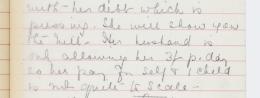 with her debt which is
pressing. She will show you
the bill. Her husband is
only allowing her 3/- p. day
so her pay for self & child
is not quite to scale -